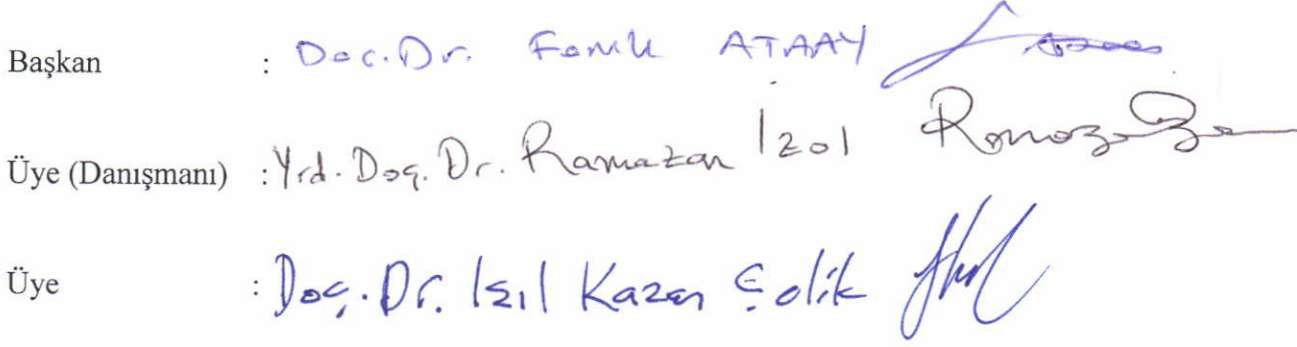 Başkan : Doc.Dr. Faruk ATAAY
Üye (Danışmanı) : Yrd. Doç. Dr. Ramazan İzol
Üye : Doç. Dr. Işıl Kazan Çelik